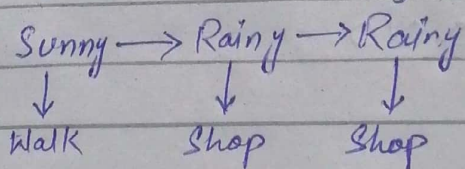 Sunny → Rainy → Rainy
↓ ↓ ↓
Walk Shop Shop